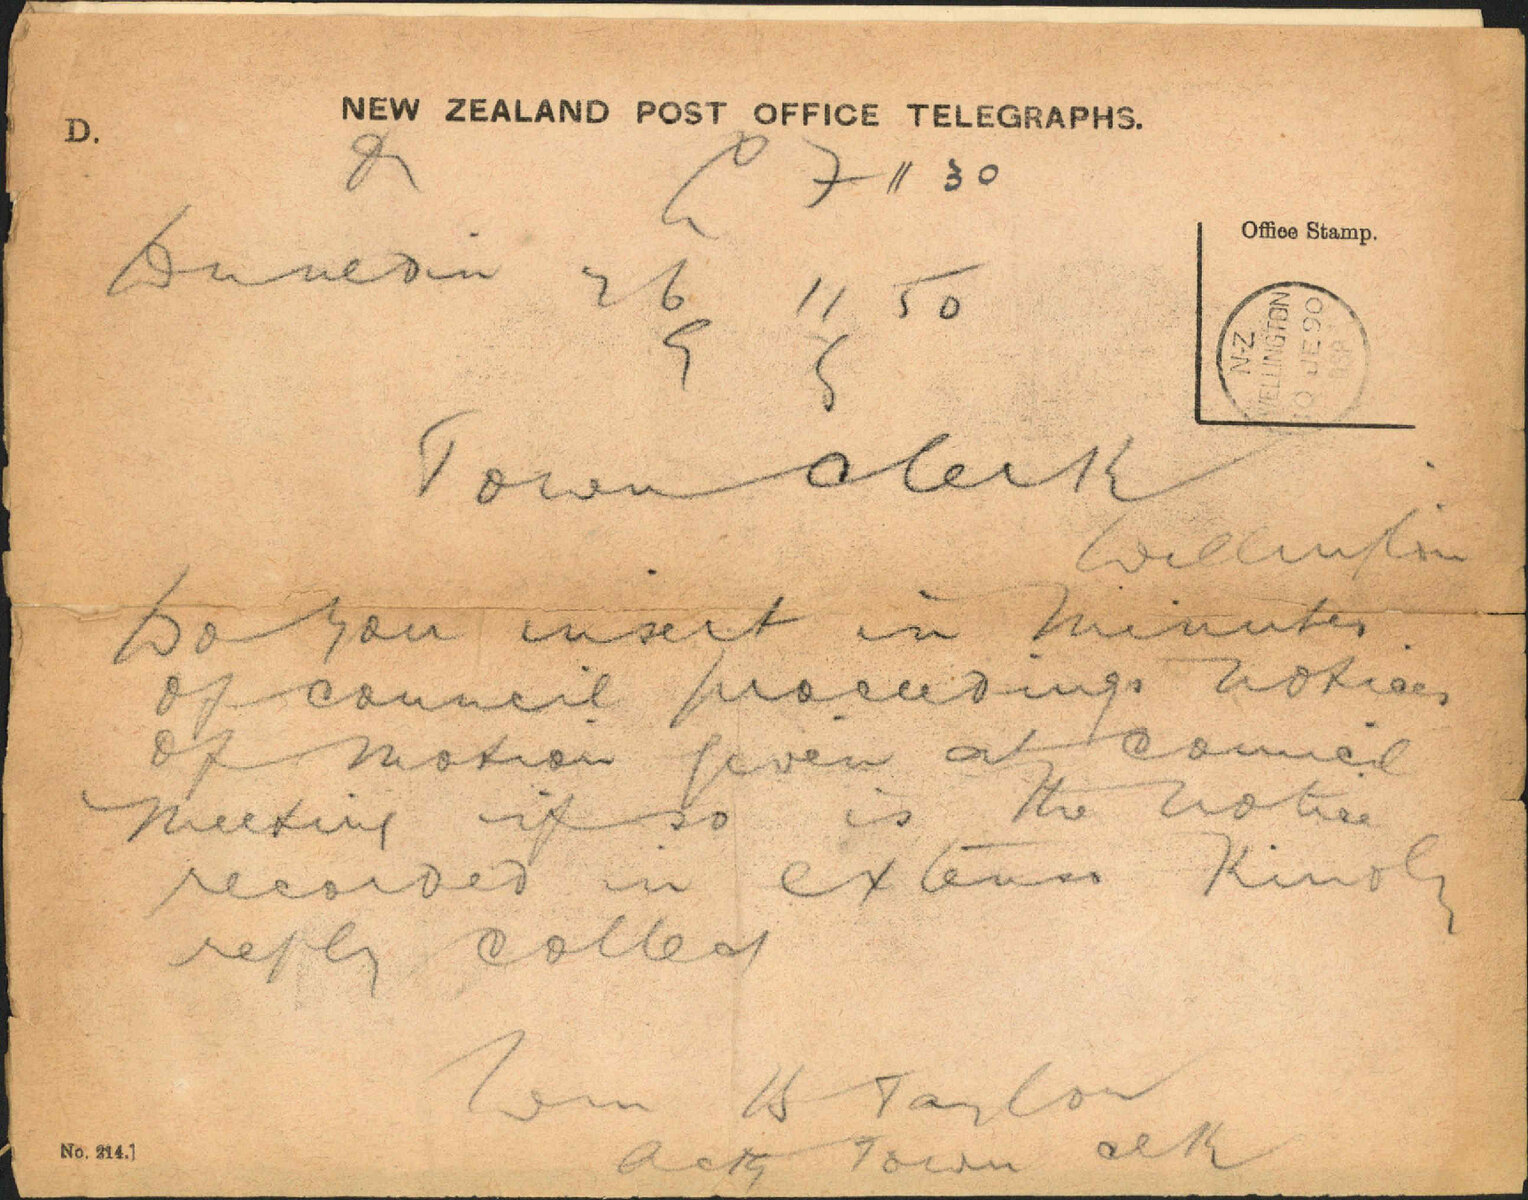 NEW ZEALAND POST OFFICE TELEGRAPHS.
D.
7 11 30
Office Stamp.
Dunedin 26 11 50
N-Z
WELLINGTON
10 JE 90
Town Clerk
Wellington
Do you insert in minutes
of council proceedings notices
of motion given at council
meeting if so is the notice
recorded in extenso Kindly
reply collect
Wm H Taylor
Actg Town Clk
No. 214.]